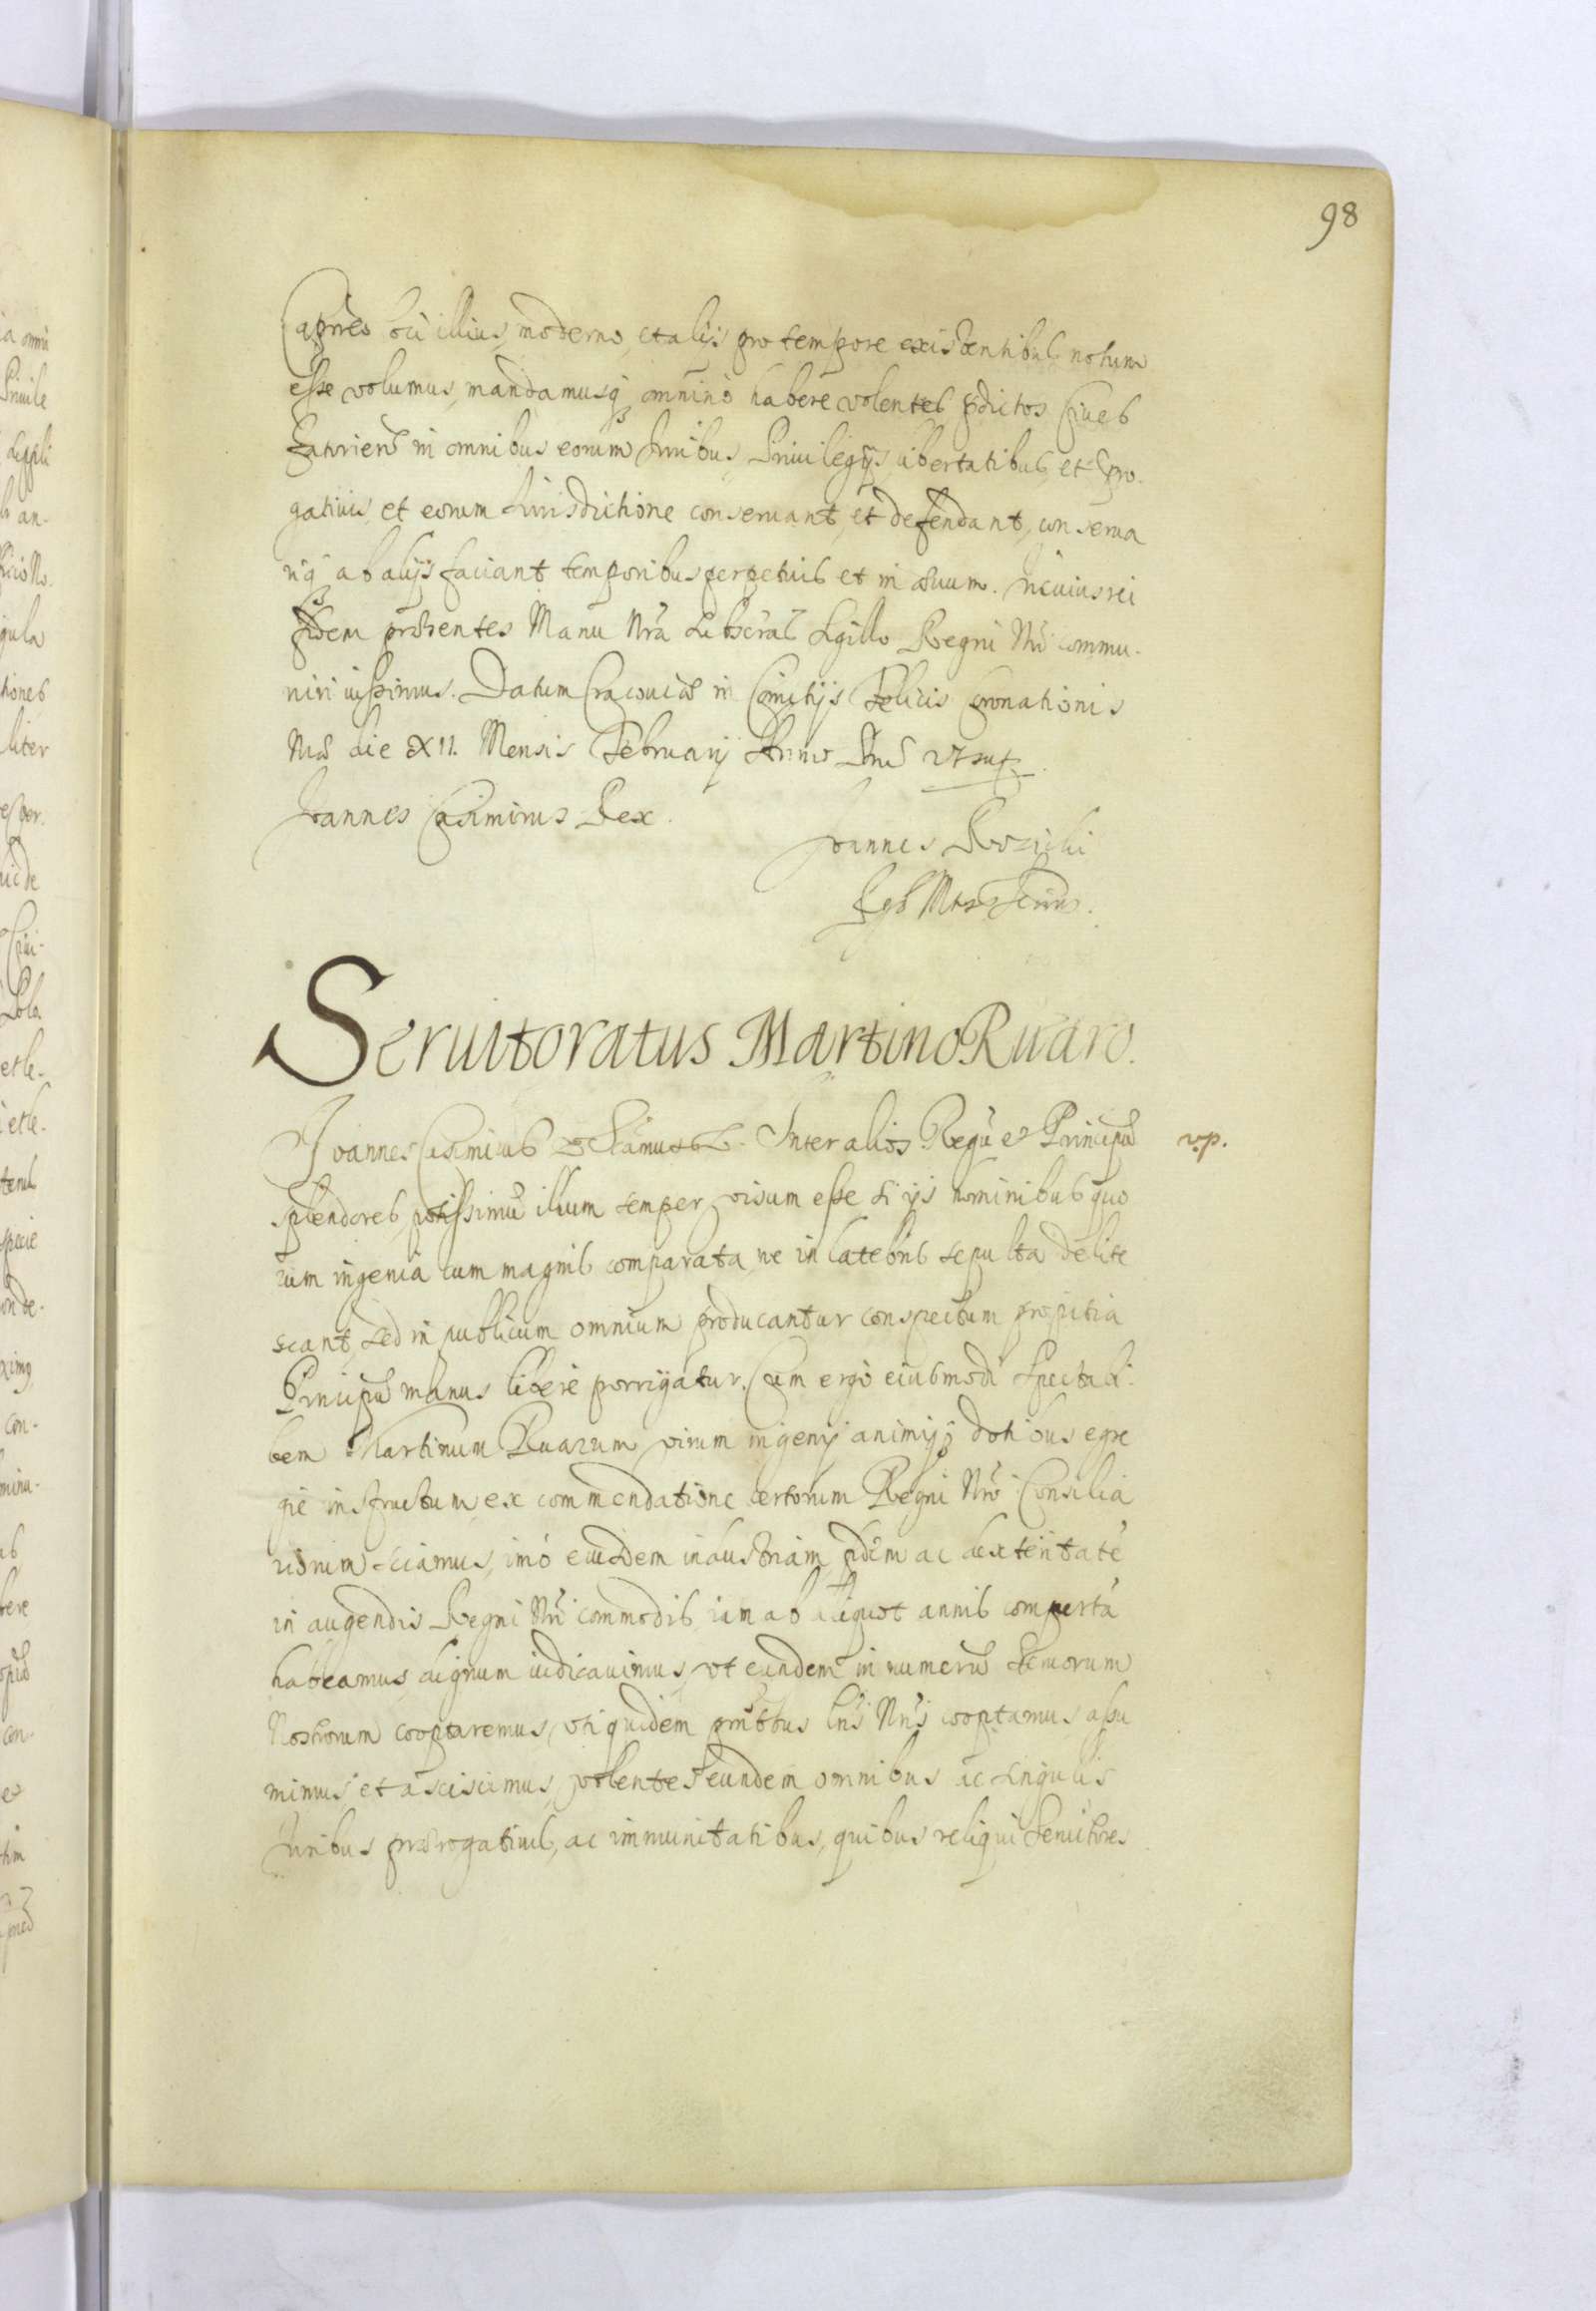 98
Capneo loci illius, moderno, et alijs pro tempore existentibus notum
esse volumus, mandamusq omnino habere volentes pdictos Ciues
in omnibus eorum Iuribus Priuilegijs, libertatibus, et Prro-
gatiuis, et eorum Iurisdictione conseruant, et defendant, conserua
riq ab alijs faciant temporibus perpetuis et in æuum. In cuius rei
fidem præsentes Manu Nrã subscrãs Sigillo Regni Nrĩ commu-
niri iussimus. Datum Cracouiæ in Comitijs Felicis Coronationis
Nræ die XII. Mensis Februarij Anno Dni vt sup.
Ioannes Casimirus Rex.
Ioannes
Seruitoratus Martino Ruaro.
Ioannes Casimirus & Scamus &. Inter alios Regũ et Principũ v.p.
splendores, potissimũ illum semper visum esse si ijs hominibus quo
rum ingenia cum magnis comparata ne in latebris sepulta delite
scant, sed in publicum omnium producantur conspectum propitia
Principũ manus libere porrigatur. Cum ergo eiusmodi Spectabi-
lem Martinum Ruarum virum ingenij animijq dotibus egre
gie instructum ex commendatione certorum Regni Nrĩ Consilia
riorum sciamus, imò eiusdem industriam, fidem ac dexteritatẽ
in augendis Regni Nrĩ commodis, iam ab aliquot annis compertã
habeamus, dignum iudicauimus, vt eundem in numerũ Seruorum
Nostrorum cooptaremus, vti quidem pñtibus Lrĩs Nrĩs cooptamus, assu
mimus et asciscimus, volentes eundem omnibus ac singulis
Iuribus prærogatiuis, ac immunitatibus, quibus reliqui Seruitores